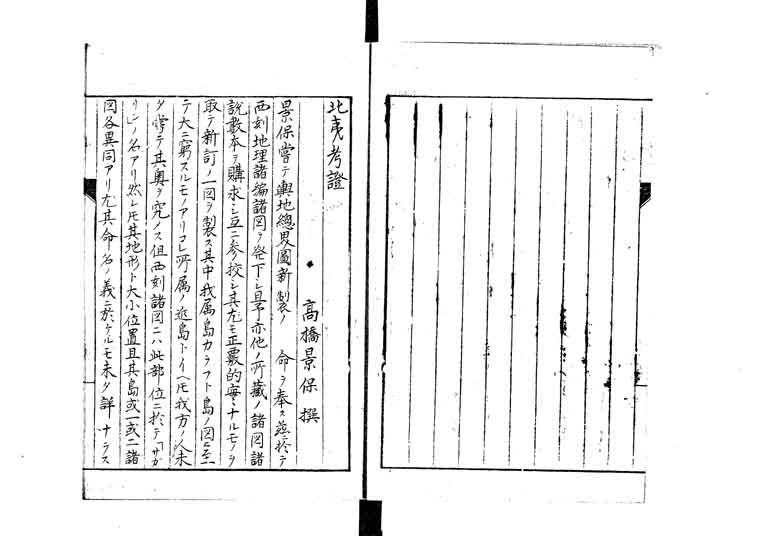 北夷考證
高橋景保撰
景保嘗テ輿地總界圖新製ノ 命ヲ奉ス茲ニ於テ
西刻地理諸編諸図ヲ発下シ且予亦他ノ所藏ノ諸図諸
説數本ヲ購求シ互ニ参挍シ其尤モ正覈的実ナルモノヲ
取テ新訂ノ一図ヲ製ス其中我属島カラフト島ノ図ニ至
テ大ニ窮スルモノアリコレ所属ノ近島トイヘ𪜈我方ノ人未
タ嘗テ其奥ヲ究ノス但西刻諸図ニハ此部位ニ於テ「サガ
リン」ノ名アリ然レ𪜈其地形ト大小位置且其島或一或二諸
図各異同アリ尤其命名ノ義ニ於ケルモ未タ詳ナラス